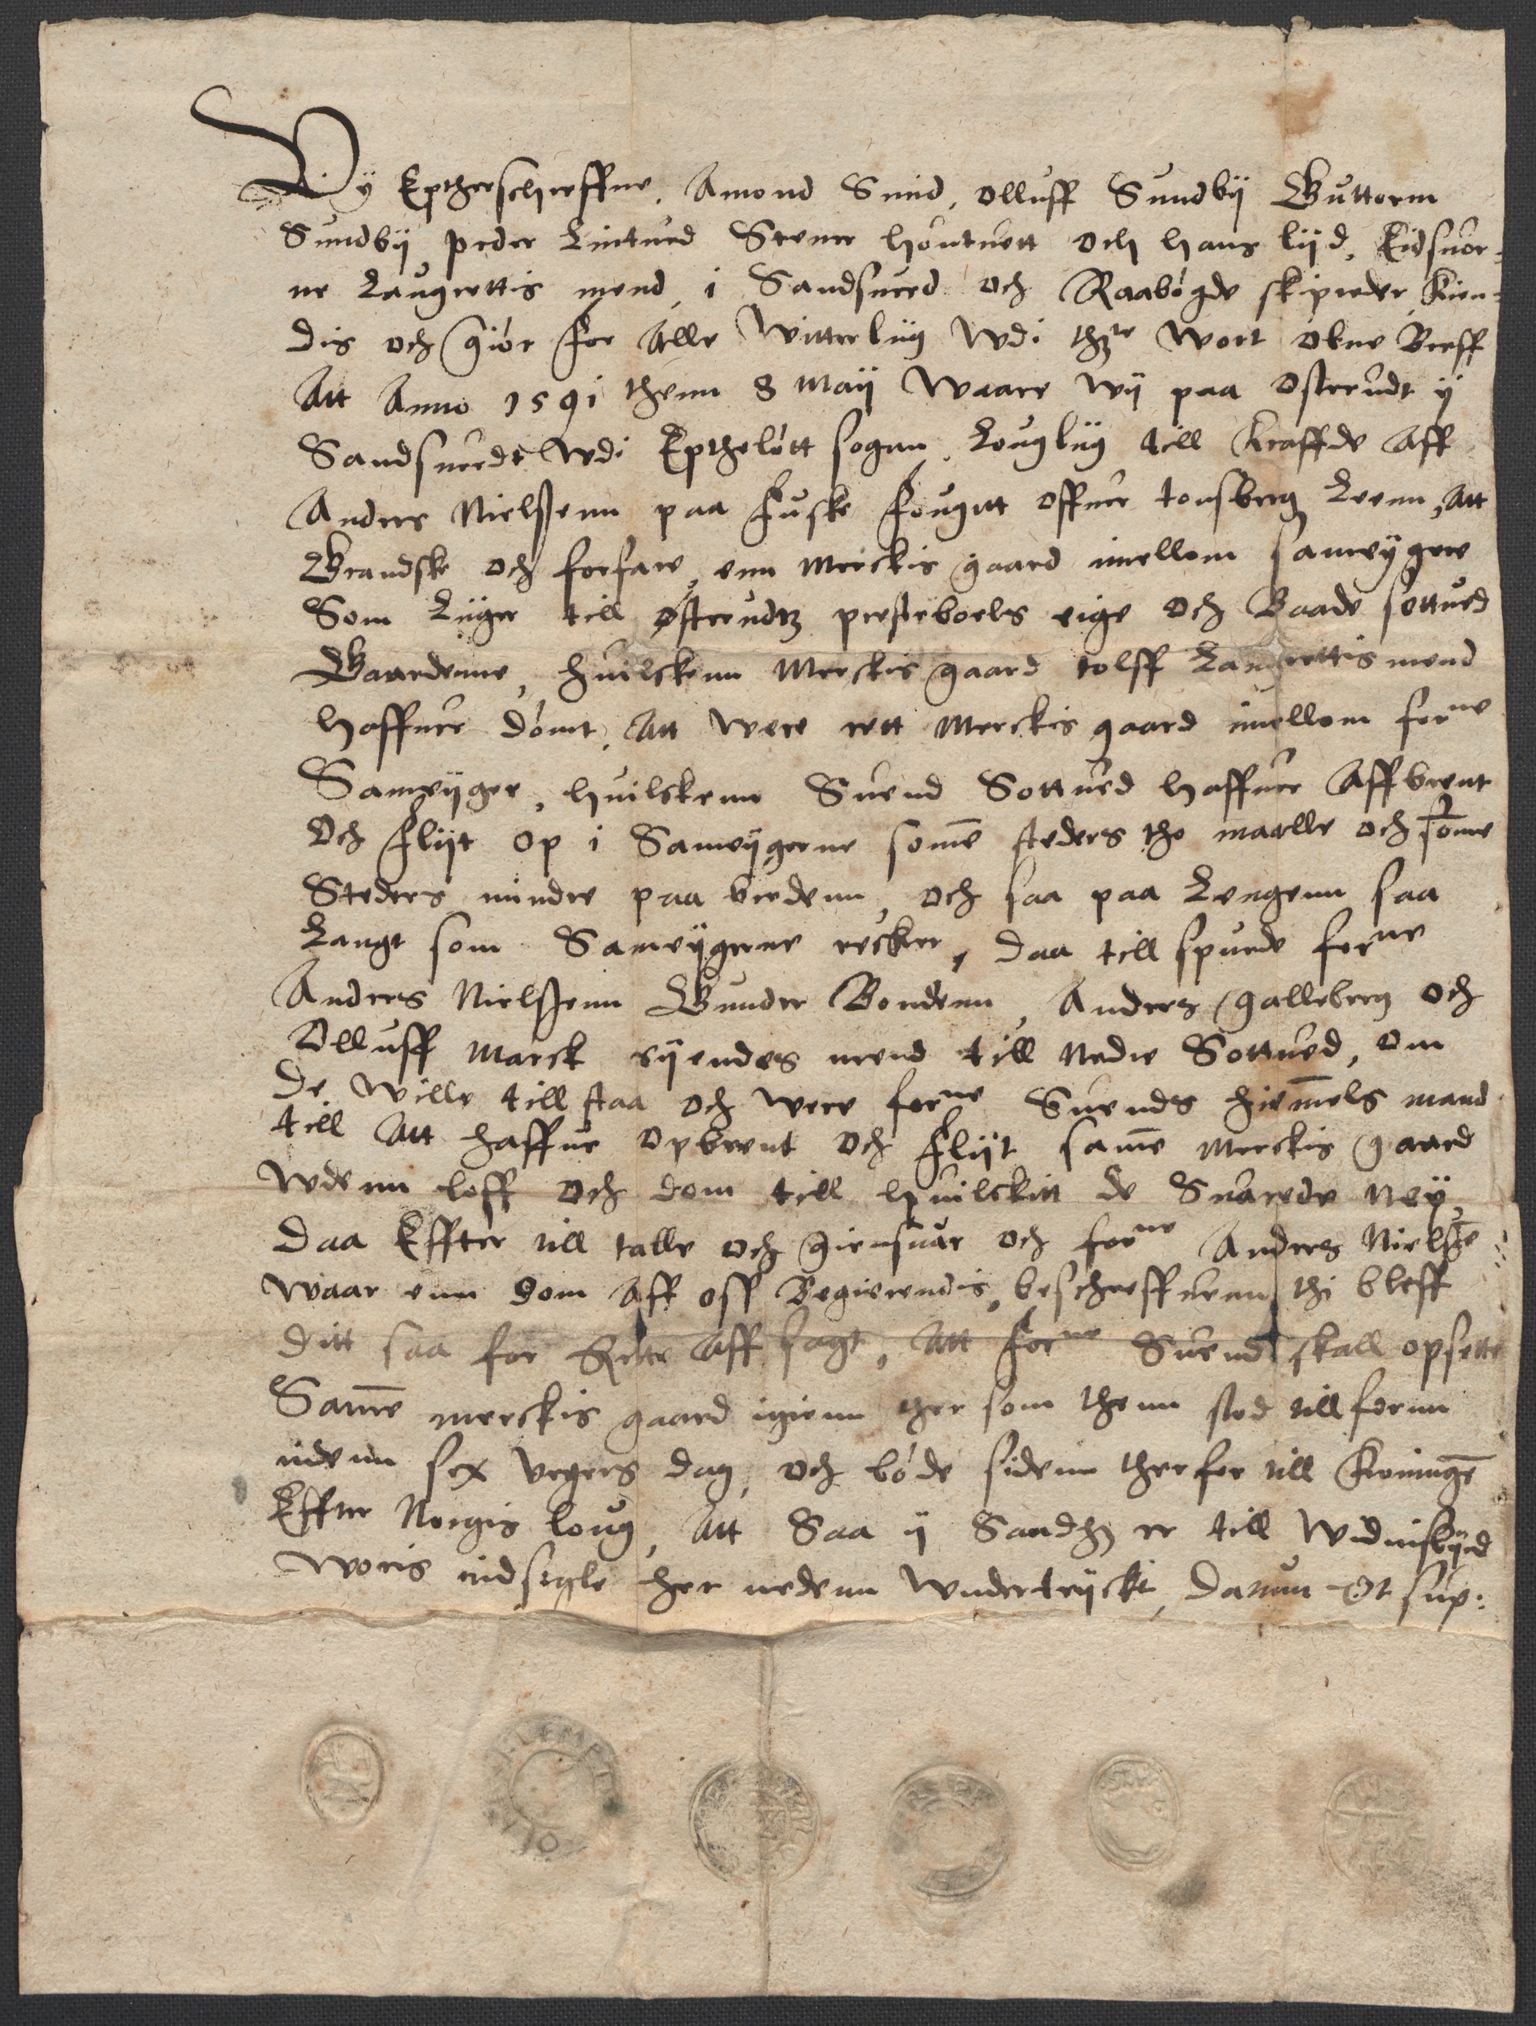 Wÿ Epther schreffne, Amond Smid, Olluff Sundbÿ Guttorm
Sundbÿ peder Lintued Stener houtuett och hans lijd, Eidsuor-
ne Laugrettis mend, i Sandsuerd och Raabøgde skipreder Kien-
dis och giör for Alle Witterlиg Wdi thꝫte Wort obne Breff
Att Anno 1591 thenn 8 Maij Waare Wÿ paa Østerudt ÿ
Sandsuerdt Wdi Epthelött sogenn, Louglиg till Kraffde Aff
Anders Nielssenn paa Fuske Fougitt offuer tonsberg Leenn, Att
Grandske och forfare, enn Merckis gaard imellom sameÿgere
Som Liiger till Østerudtz presteboels eige och Baade sottued
Gaardenne, huilckenn Merckis gaard tolff Laugrettis mend
haffuer dömt, Att were rett Merckis gaard imellom forne
Sameÿger, huilckenn Suend Sottued haffuer Affbrent
Och Flÿt op i Sameÿgerne some steders tho maelle och some
Steders mindre paa bredenn, och saa paa Lengenn saa
Langt som Sameÿgerne recker, daa till spurde forne
Anders Nielssenn Gunder Bondenn, Anders galleberg och
Olluff Marck eÿendes mend till nedre Sottued, om
De Wille till staa och were forne Suends hiemels mand
till Att haffue opbrent och Flÿt same Merckis gaard
Wdenn loff och dom till huilckitt de Suarede Neÿ,
Daa Effter till talle och giensuar och forne Anders Nielsse
Waar enn dom Aff oss Begierendis, beschreffuenn, thi bleff
Ditt saa for Rette Aff sagt, Att forne Suend skall opsette
Same merckis gaard igienn ther som thenn stod tillforn
indenn sex vegers dag, och böde sidenn ther for till Koninge
Effter Norgis loug, Att Saa ÿ Sandhed er till Widnisbÿrd
Woris indsegle her nedenn Wndertrÿckt, Datum Ut sup: